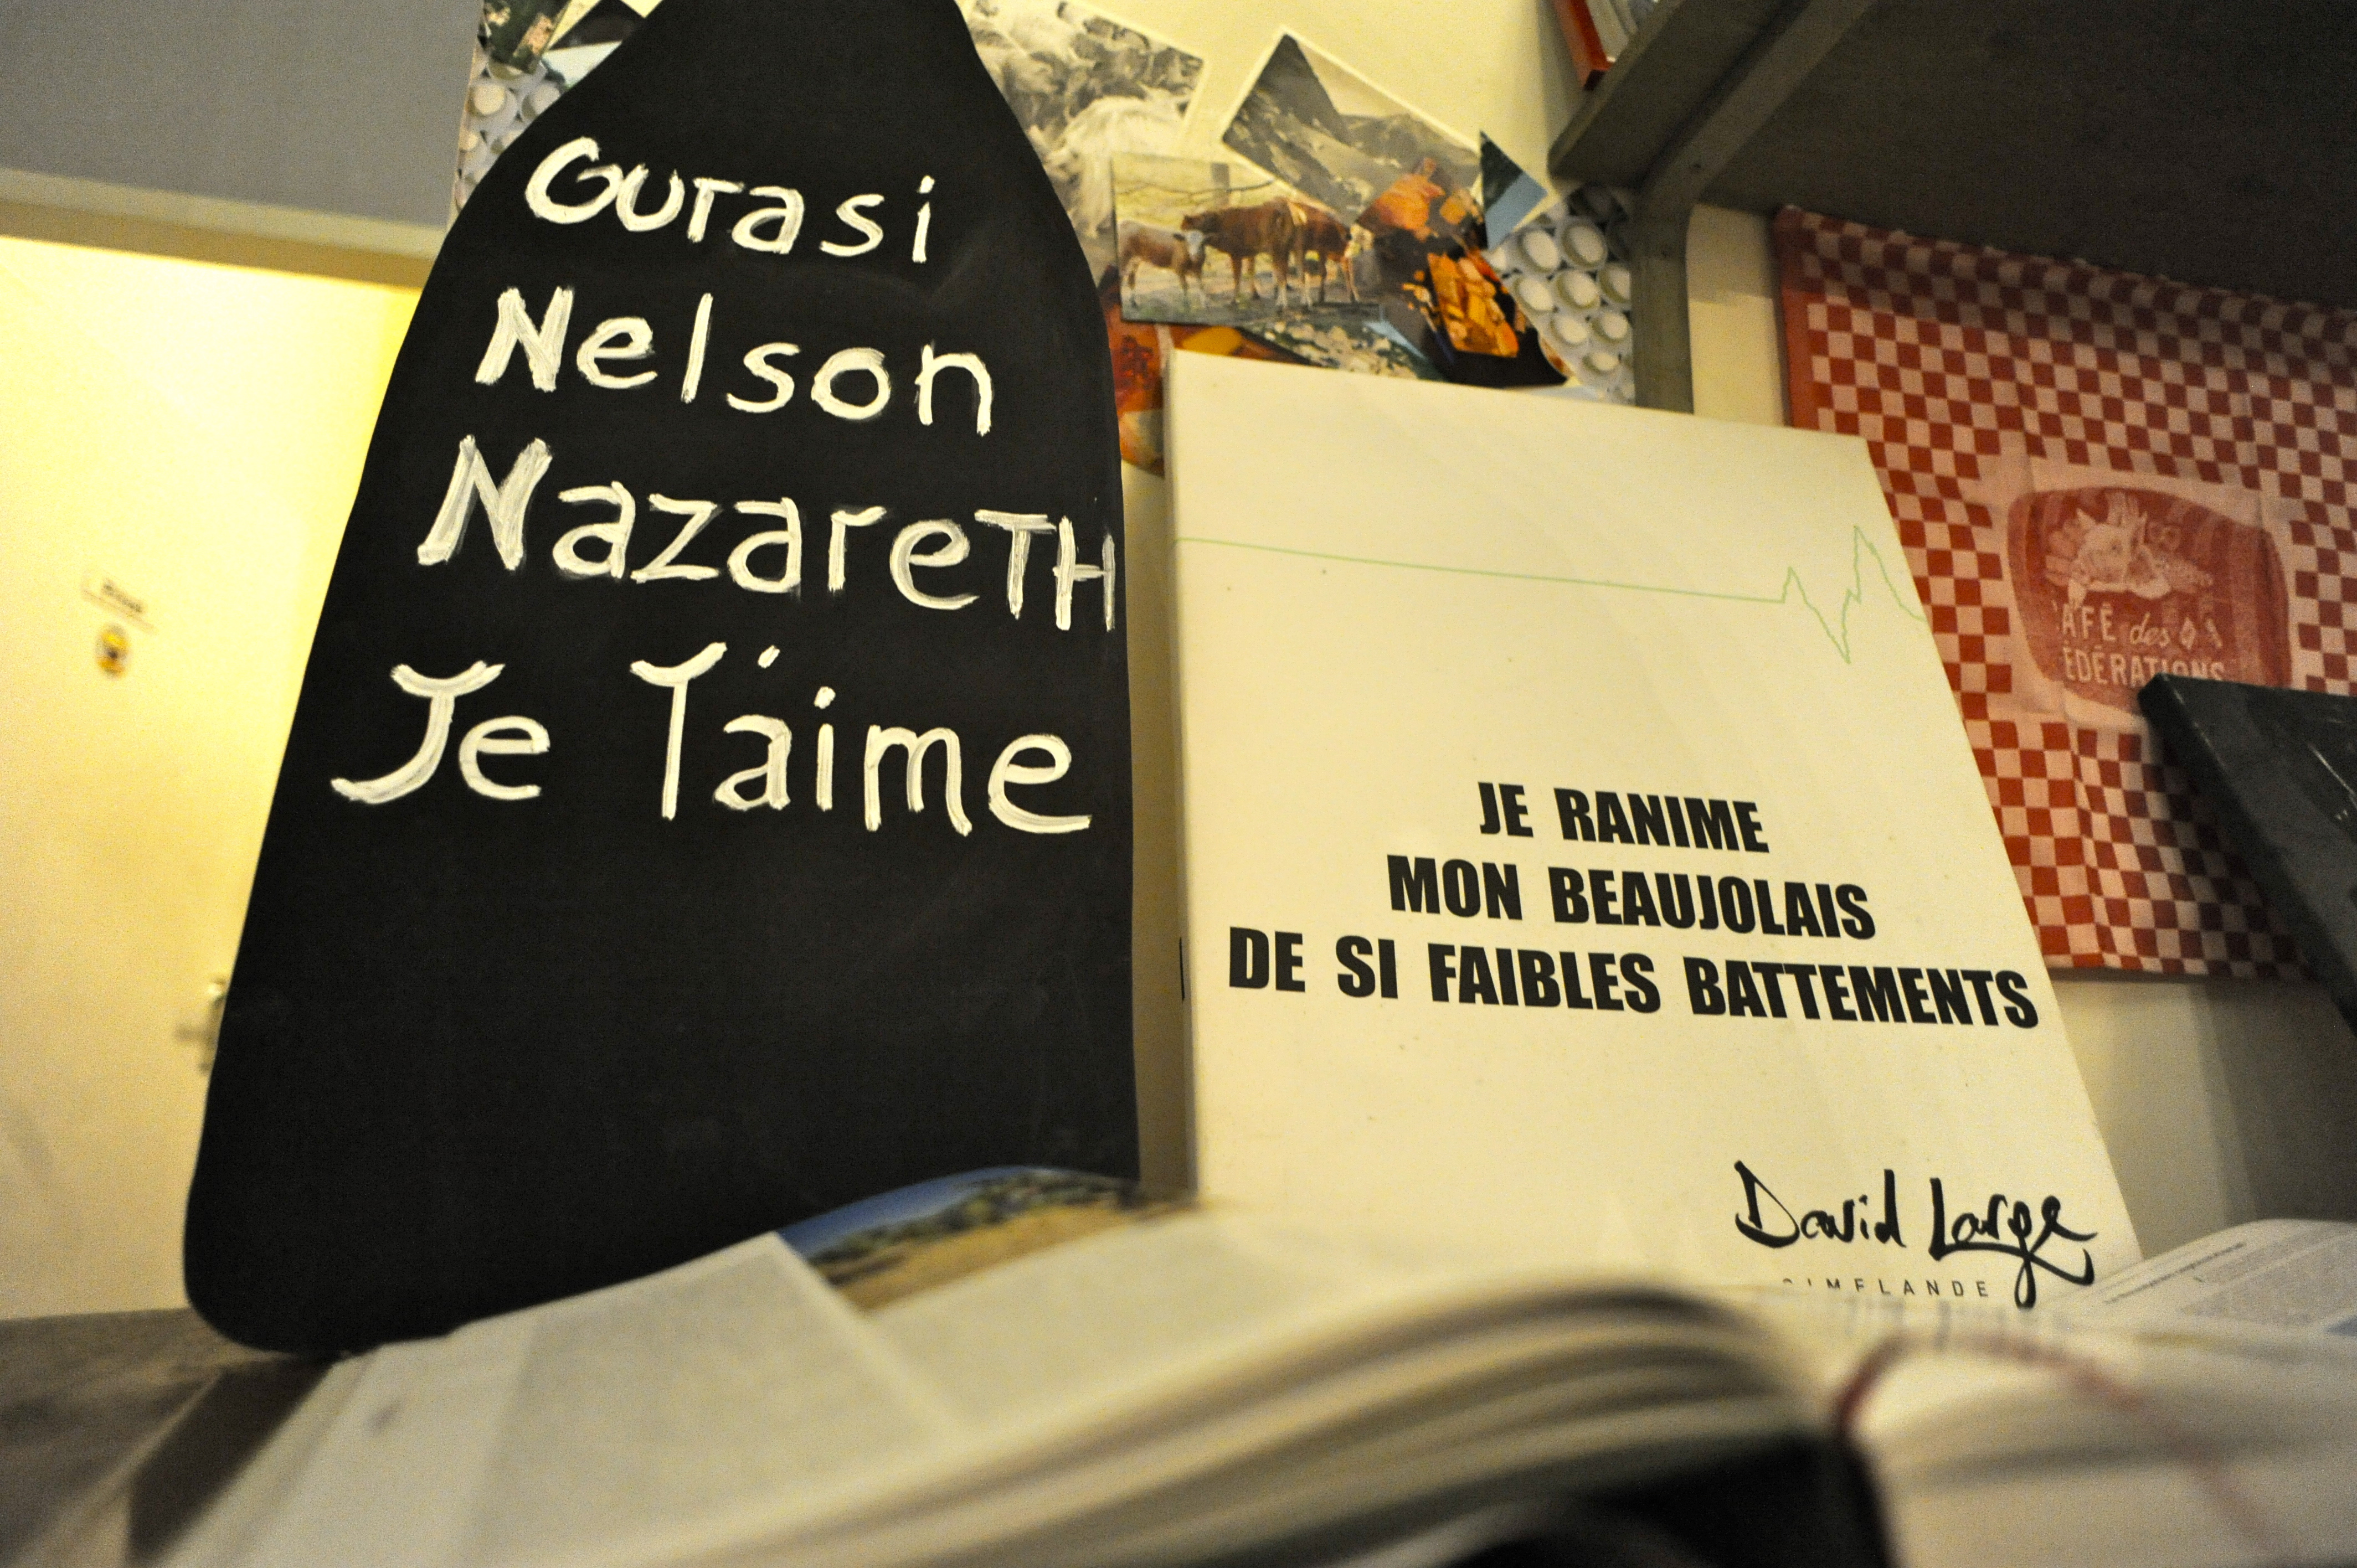 Gurasi
Nelson
NazareTH
Je T'aime
JE RANIME
MON BEAUJOLAIS
DE SI FAIBLES BATTEMENTS
David Large
GIMELANDE
AFÉ des
ÉDÉRATIONS